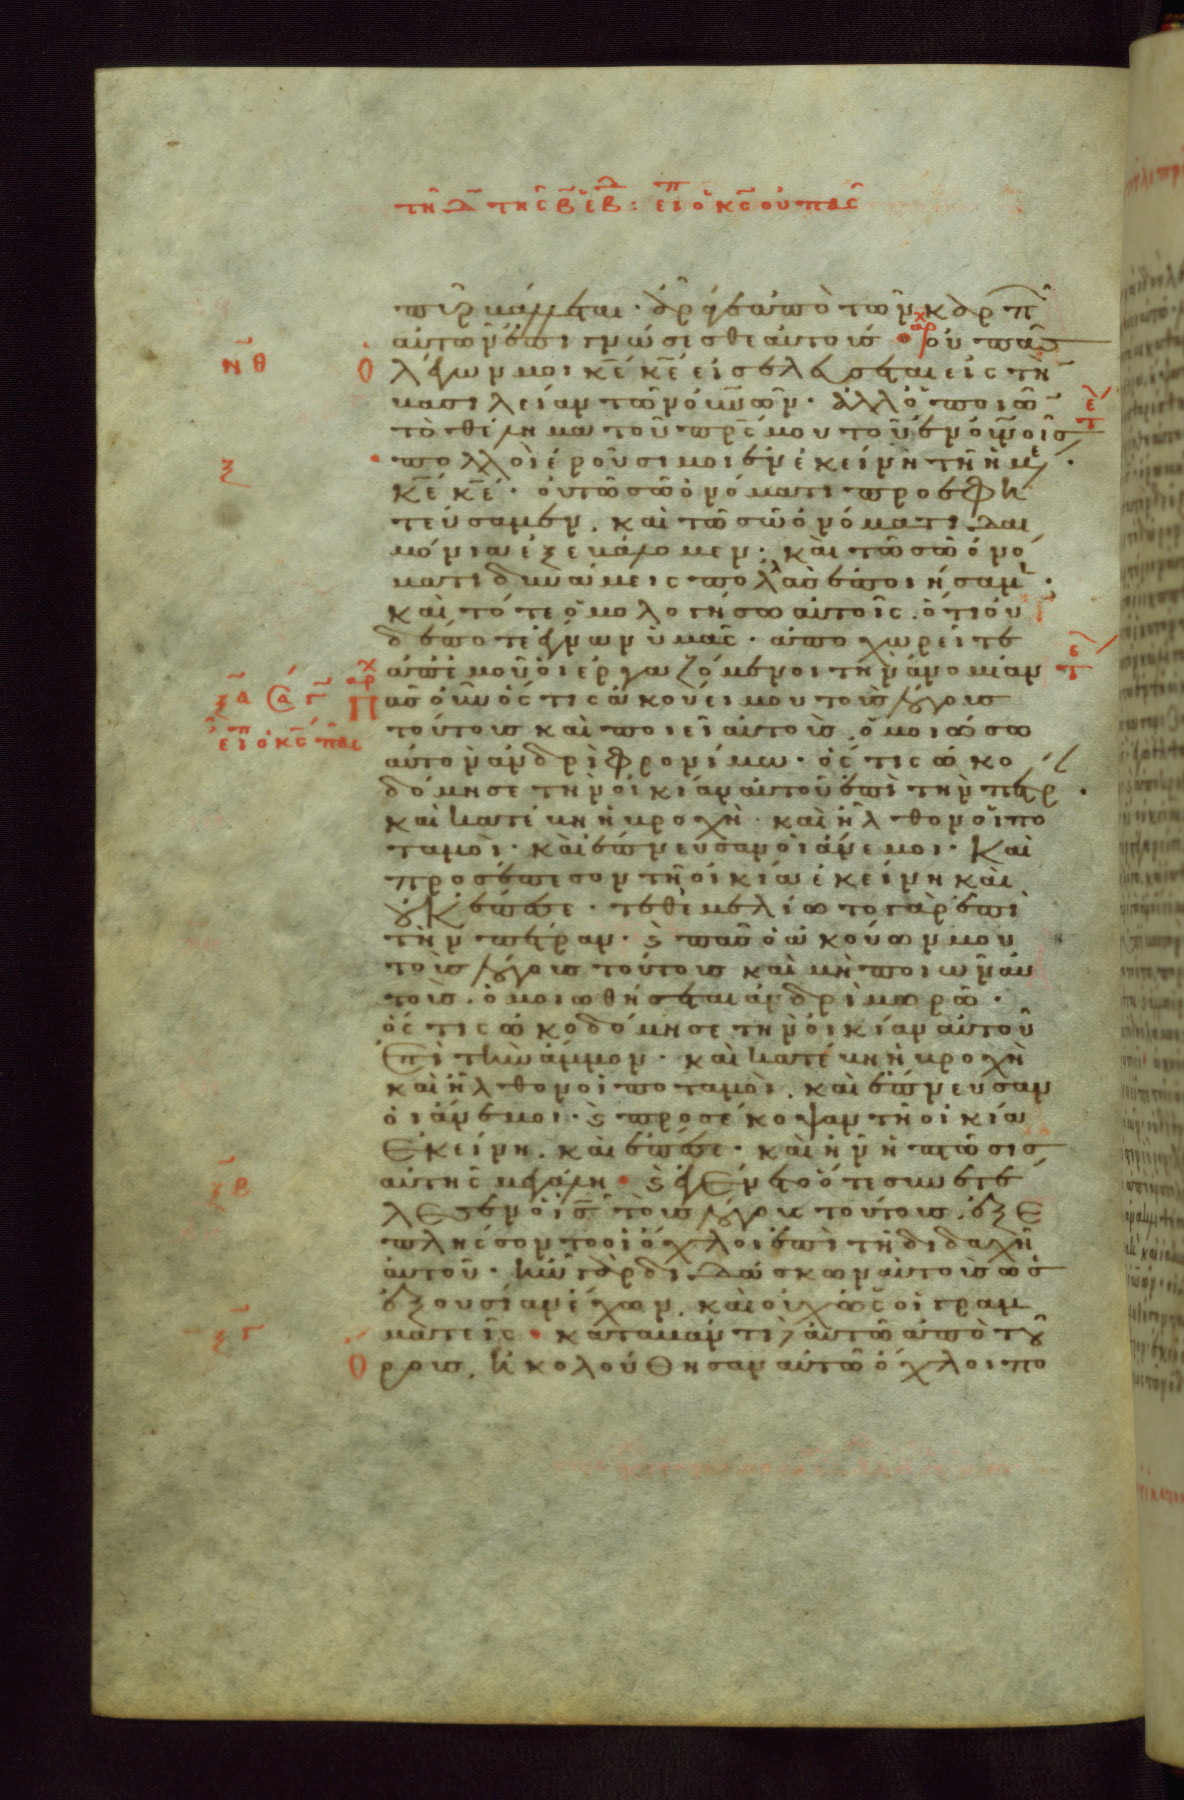 τῇ δ τῆς β ἑβδ : εἶπ ὁ κς οὐ πᾶς
πῦρ βάλλεται · ἄραγε ἀπὸ τῶν καρπῶ
αὐτῶν ἐπιγνώσεσθε αὐτούς · οὐ πᾶσ
νθ ὁ λέγων μοι κε κε εἰσελεύσεται εἰς τὴν
βασιλείαν τῶν οὐνῶν · ἀλλ' ὁ ποιῶν
τὸ θέλημα τοῦ πρς μου τοῦ ἐν οὐνοῖς
ξ πολλοὶ ἐροῦσι μοι ἐν ἐκείνη τῆ ἡμέ ·
κε κε · οὐ τῶ σῶ ὀνόματι προεφη
τεύσαμεν · καὶ τῶ σῶ ὀνόματι δαι
μόνια ἐξεβάλομεν · καὶ τῶ σῶ ὀνό
ματι δυνάμεις πολλὰς ἐποιήσαμεν ·
καὶ τότε ὁμολογήσω αὐτοῖς · ὅτι οὐ
δέποτε ἔγνων ὑμᾶς · ἀποχωρεῖτε
ἀπ' ἐμοῦ οἱ ἐργαζόμενοι τὴν ἀνομίαν
ξα α γ Πᾶς οὖν ὅστις ἀκούει μου τοὺς λόγους
εἶπ ὁ κς πᾶς
τούτους καὶ ποιεῖ αὐτοὺς · ὁμοιώσω
αὐτὸν ἀνδρὶ φρονίμω · ὅστις ὠκο
δόμησε τὴν οἰκίαν αὐτοῦ ἐπὶ τὴν πέτρ ·
καὶ κατέβη ἡ βροχὴ · καὶ ἦλθον οἱ πο
ταμοὶ · καὶ ἔπνευσαν οἱ ἄνεμοι · καὶ
προσέπεσον τῆ οἰκία ἐκείνη καὶ
οὐκ ἔπεσε · τεθεμελίωτο γὰρ ἐπὶ
τὴν πέτραν · καὶ πᾶς ὁ ἀκούων μου
τοὺς λόγους τούτους καὶ μὴ ποιῶν αὐ
τοὺς · ὁμοιωθήσεται ἀνδρὶ μωρῶ ·
ὅστις ὠκοδόμησε τὴν οἰκίαν αὐτοῦ
ἐπὶ τὴν ἄμμον · καὶ κατέβη ἡ βροχὴ
καὶ ἦλθον οἱ ποταμοὶ · καὶ ἔπνευσαν
οἱ ἄνεμοι · καὶ προσέκοψαν τῆ οἰκία
ἐκείνη · καὶ ἔπεσε · καὶ ἦν ἡ πτῶσις
ξβ αὐτῆς μεγάλη · καὶ ἐγένετο ὅτε συνετέ
λεσεν ὁ ις τοὺς λόγους τούτους · ἐξε
πλήσσοντο οἱ ὄχλοι ἐπὶ τῆ διδαχῆ
αὐτοῦ · ἦν γὰρ διδάσκων αὐτοὺς ὡς
ἐξουσίαν ἔχων · καὶ οὐχ ὡς οἱ γραμ
ξγ ματεῖς · καταβάντι αὐτῶ ἀπὸ τοῦ
ὄρους · ἠκολούθησαν αὐτῶ ὄχλοι πο